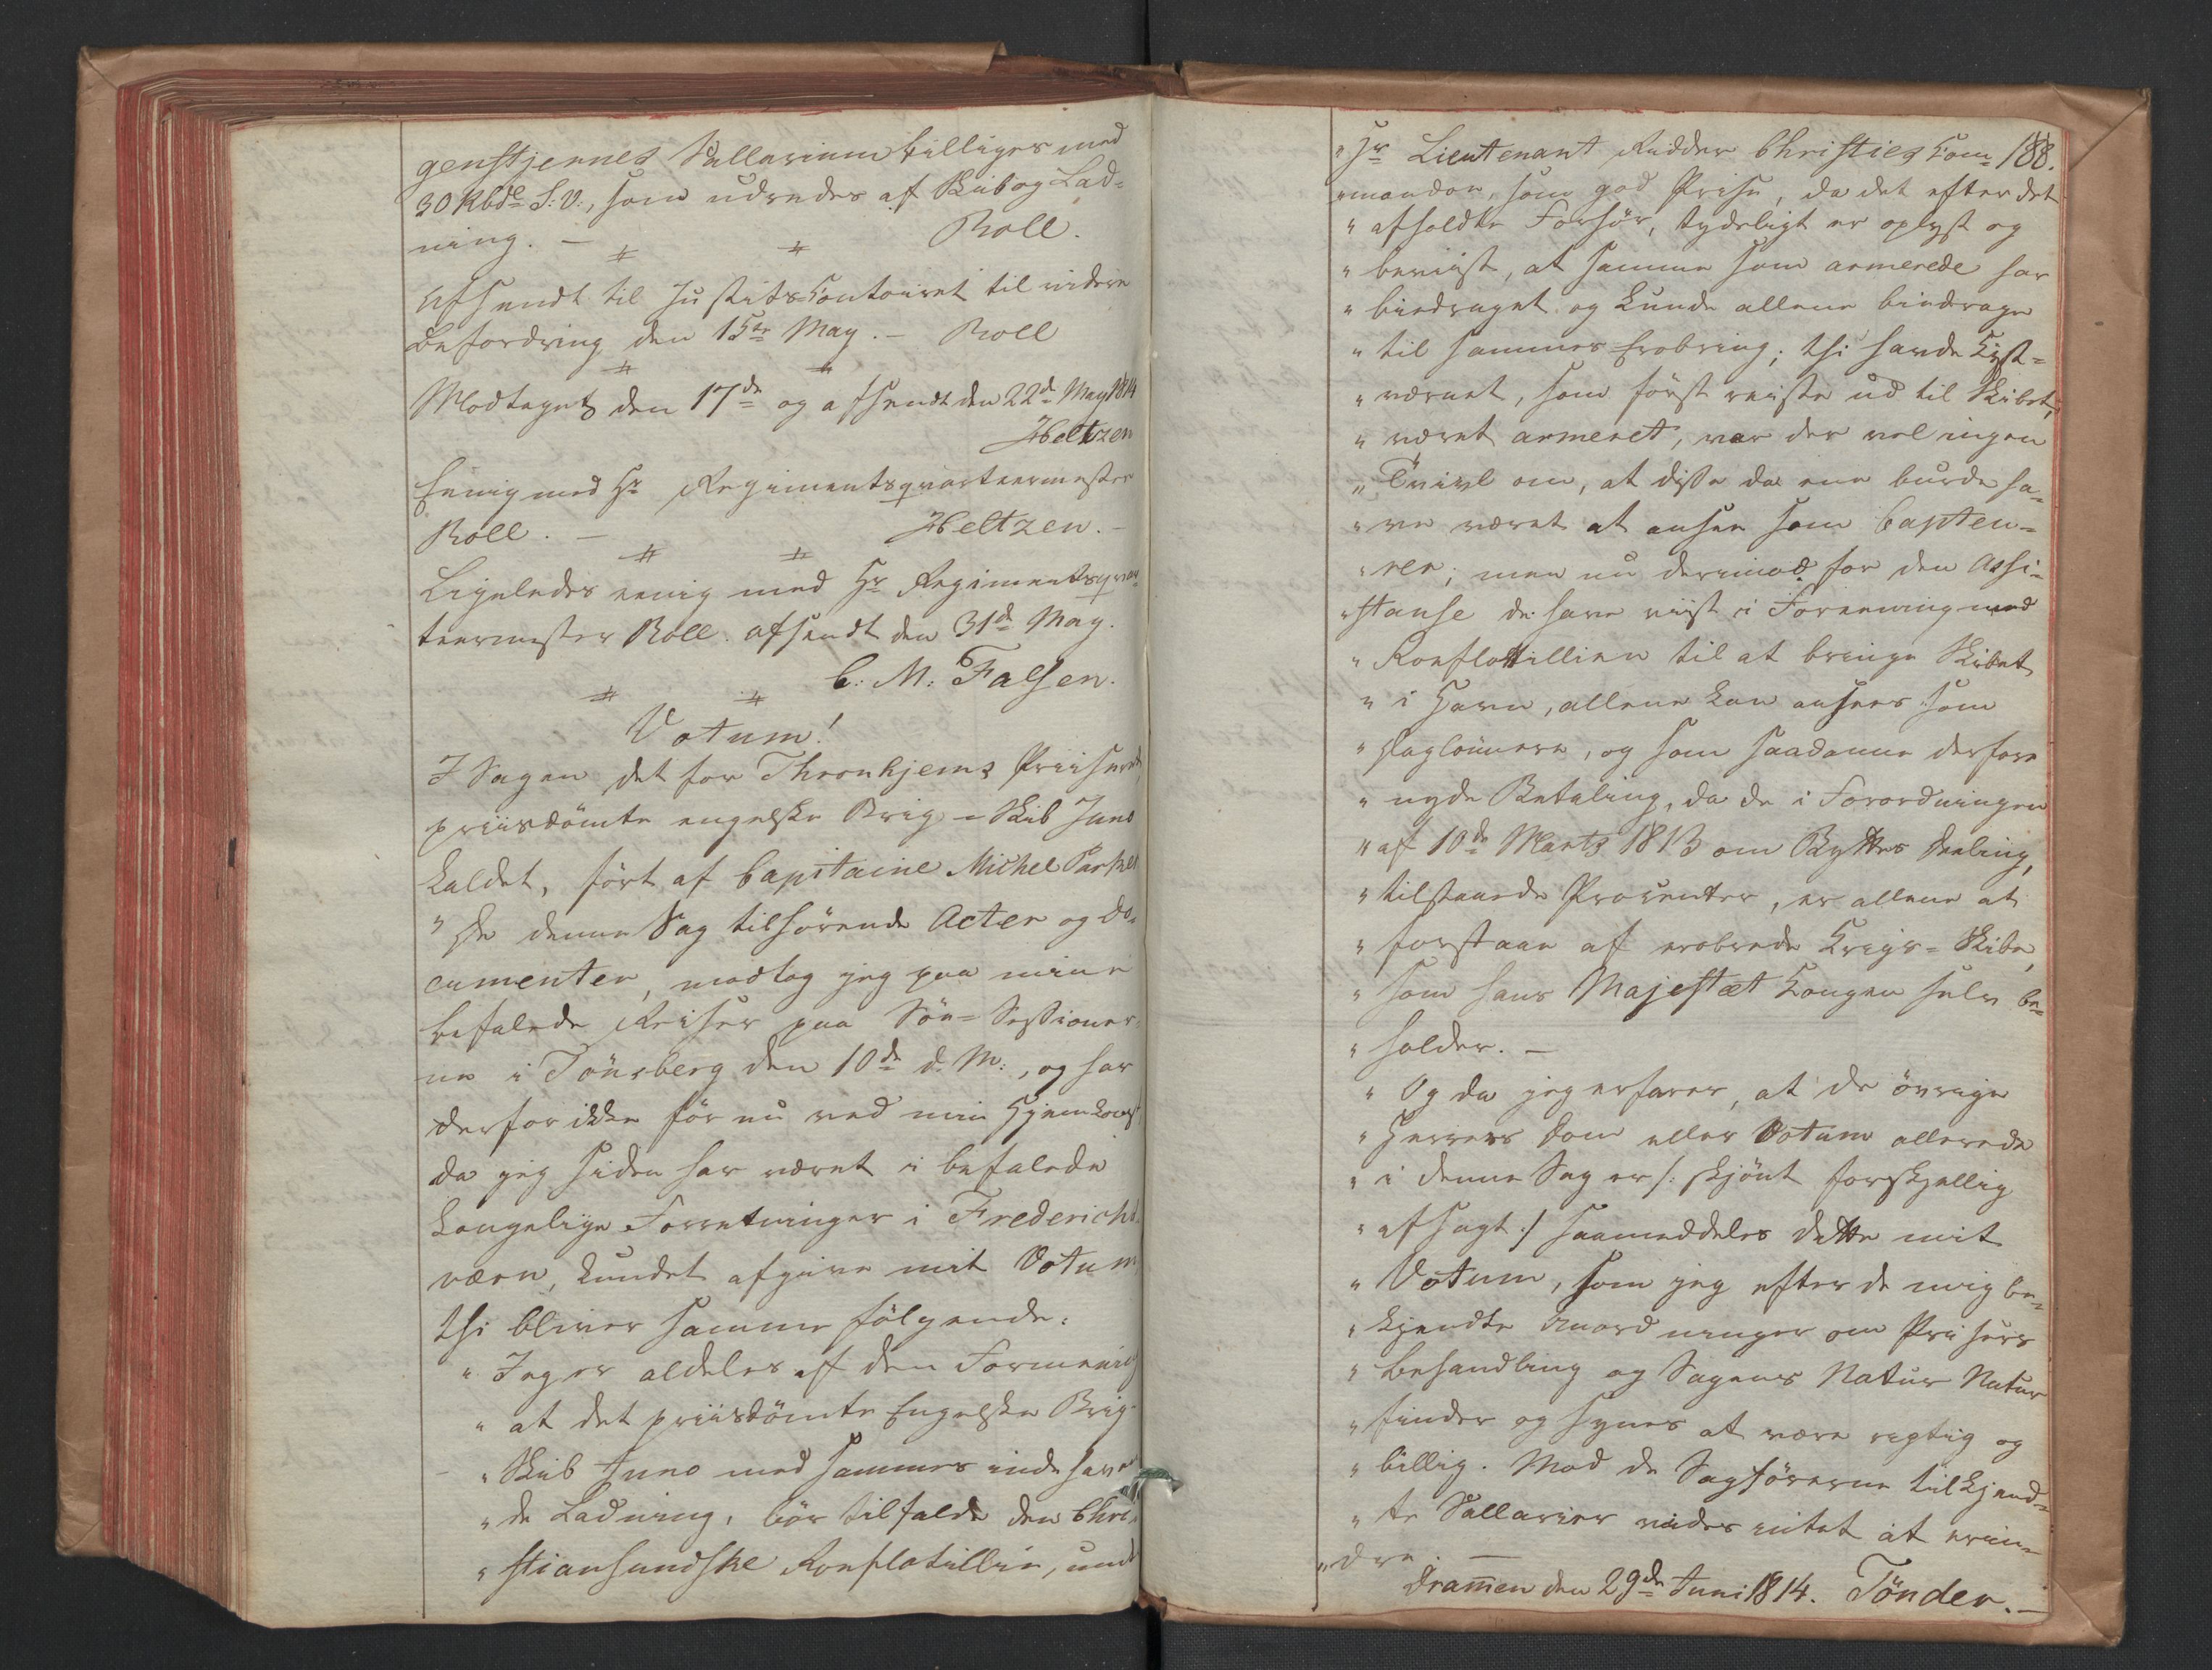 genstjernes Sallarium billiges med
30 Rbdr S: V:, som udredes af Skib og Lad-
ning. — Roll.
Afsendt til Justits-Contoiret til videre
Befordring den 15de May. — Roll
Modtaget den 17de og afsendt den 22de May 1814
Heltzen
Eenig med Hr Regimentsqvarteermester
Roll. — Heltzen. —
Ligeledes eenig med Hr Regimentsqvar-
teermester Roll. afsendt den 31de May.
C: M: Falsen.
Votum!
I Sagen det for Thronhjems Priisret
priisdömte engelske Brig-Skib Juno
kaldet, fört af Capitaine Michel Parker
" De denne Sag tilhörende Acter og Do-
cumenter, modtog jeg paa mine
befalede Reiser paa Söe-Sessioner-
ne i Tönsberg den 10de d. M:, og har
derfor ikke för nu ved min Hjemkomst
da jeg siden har været i befalede
kongelige Forretninger i Frederichs-
værn, kundet afgive mit Votum,
thi bliver samme fölgende:
" Jeg er aldeles af den Formening
" at det priisdömte Engelske Brig-
" Skib Juno med sammes indehaven-
" de Ladning, bör tilfalde den Chri-
" stiansundske Roeflotillie, under
188.
" Hr Lieutenant Ridder Christies Com-
" mandoe, som god Prise, da det efter det
" afholdte Forhör, tydeligt er oplyst og
" beviist, at samme som armerede har
" biedraget og kunde allene biedrage
" til sammes Erobring; thi havde Kyst-
" værnet, som först reiste ud til Skibet,
" været armeret, var der vel ingen
" Tvivl om, at disse da ene burde ha-
" ve været at ansee som Capteu-
" rer; men nu derimod for den Assi-
" stanse de have viist i Foreening med
" Roeflottillien til at bringe Skibet
" i Havn, allene kan ansees som
" Daglönnere, og som saadanne derfore
" nyde Betaling, da de i Forordningen
" af 10de Marts 1813 om Byttes Deeling,
" tilstaaede Procenter, er allene at
" forstaae af erobrede Krigs-Skibe,
" som hans Majestæt Kongen selv be-
" holder. —
" Og da jeg erfarer, at de övrige
" Herrers Dom eller Votum allerede
" i denne Sag er /: skjönt forskjellig
" afsagt :/ saa meddeles dette mit
" Votum, som jeg efter de mig be-
" kjendte Anordninger om Prisers
" Behandling og Sagens Natur Natur
" finder og synes at være rigtig og
" billig. Mod de Sagförerne tilkjend-
" te Sallarier vides intet at erin-
" dre. —
Dramen den 29de Juni 1814. Tönder. —